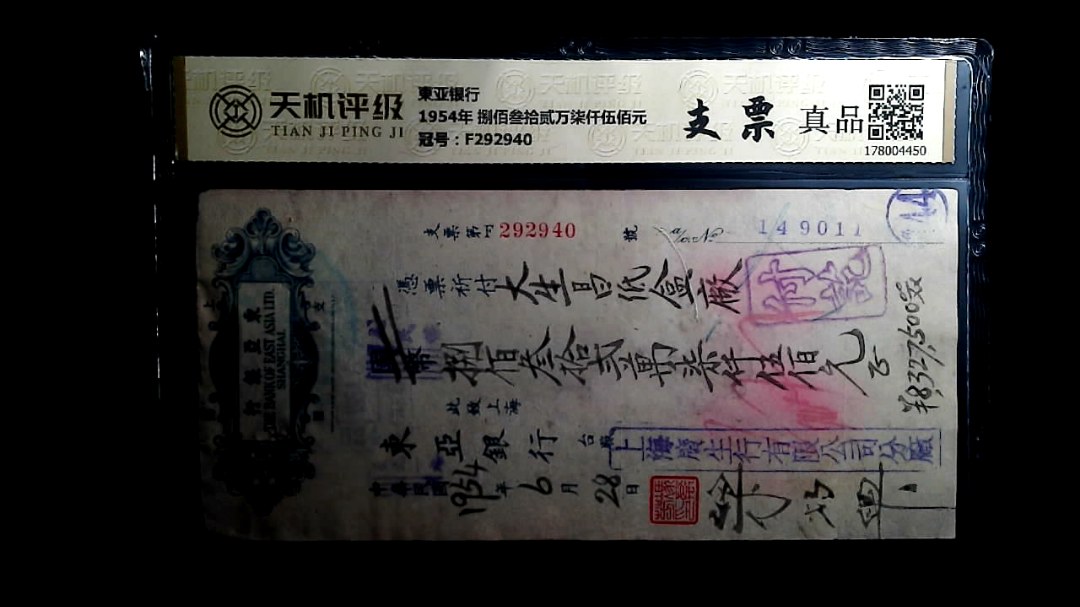 天机评级
TIAN JI PING JI
東亚银行
1954年 捌佰叁拾贰万柒仟伍佰元
冠号：F292940
支票
真品
178004450
支票第 292940 號
a/c No 149011
44
憑票祈付大生昌低盒廠
付訖
幣捌佰叁拾弍萬柒仟伍佰元正
¥8327,500
此致上海
東亞銀行 台照
上海廣生行有限公司分廠
1954年6月28日
行銀亞東
THE BANK OF EAST ASIA LTD.
SHANGHAI
支